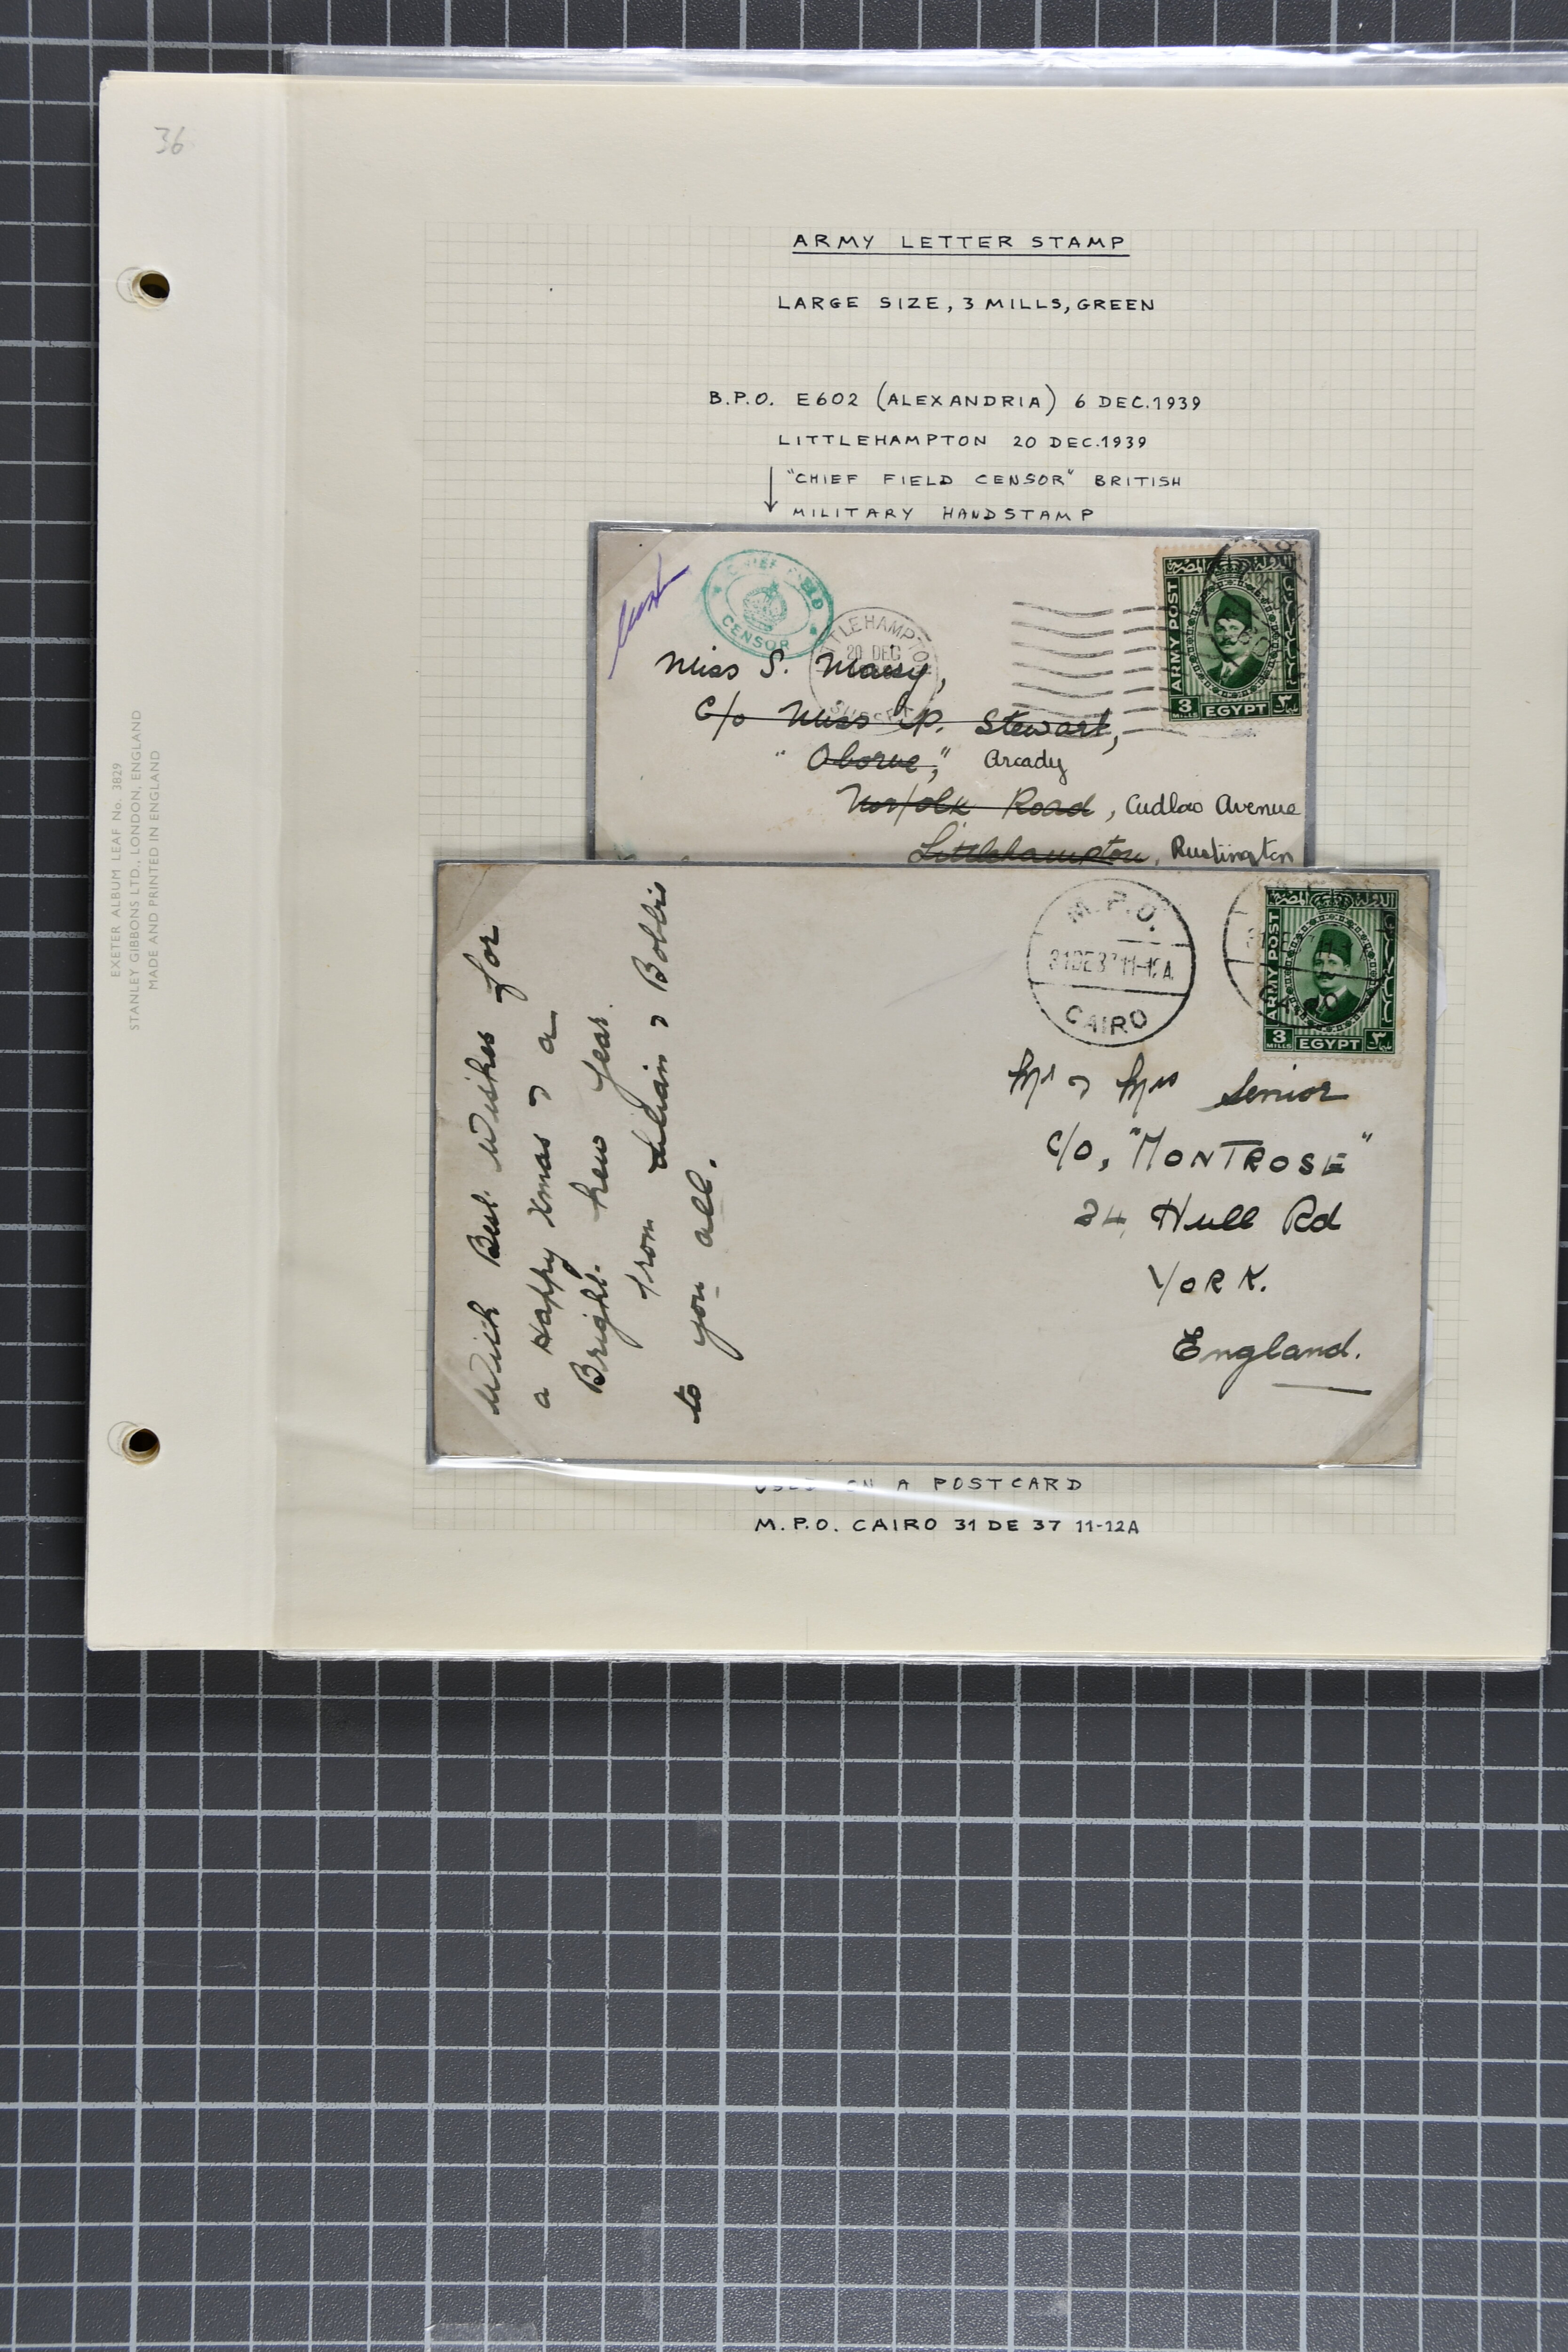 36
ARMY LETTER STAMP
LARGE SIZE, 3 MILLS, GREEN
B.P.O. E602 (ALEXANDRIA) 6 DEC. 1939
LITTLEHAMPTON 20 DEC. 1939
"CHIEF FIELD CENSOR" BRITISH
MILITARY HANDSTAMP
CHIEF FIELD
CENSOR
20 DEC
الدولة المصرية
ARMY POST
3 MILLS EGYPT ٣
Miss S. Massy,
C/o Miss P. Stewart,
"Oborne," Arcady
Norfolk Road, Cudlow Avenue
Littlehampton, Rustington
With Best Wishes for
a Happy Xmas & a
Bright New Year
from Lilian & Bobbie
to you all.
M.P.O.
31 DE 37 11-12A
CAIRO
الدولة المصرية
ARMY POST
3 MILLS EGYPT ٣
Mr & Mrs Senior
C/O, "MONTROSE"
24 Hull Rd
YORK.
England.
USED ON A POSTCARD
M.P.O. CAIRO 31 DE 37 11-12A
EXETER ALBUM LEAF No. 3829
STANLEY GIBBONS LTD., LONDON, ENGLAND
MADE AND PRINTED IN ENGLAND